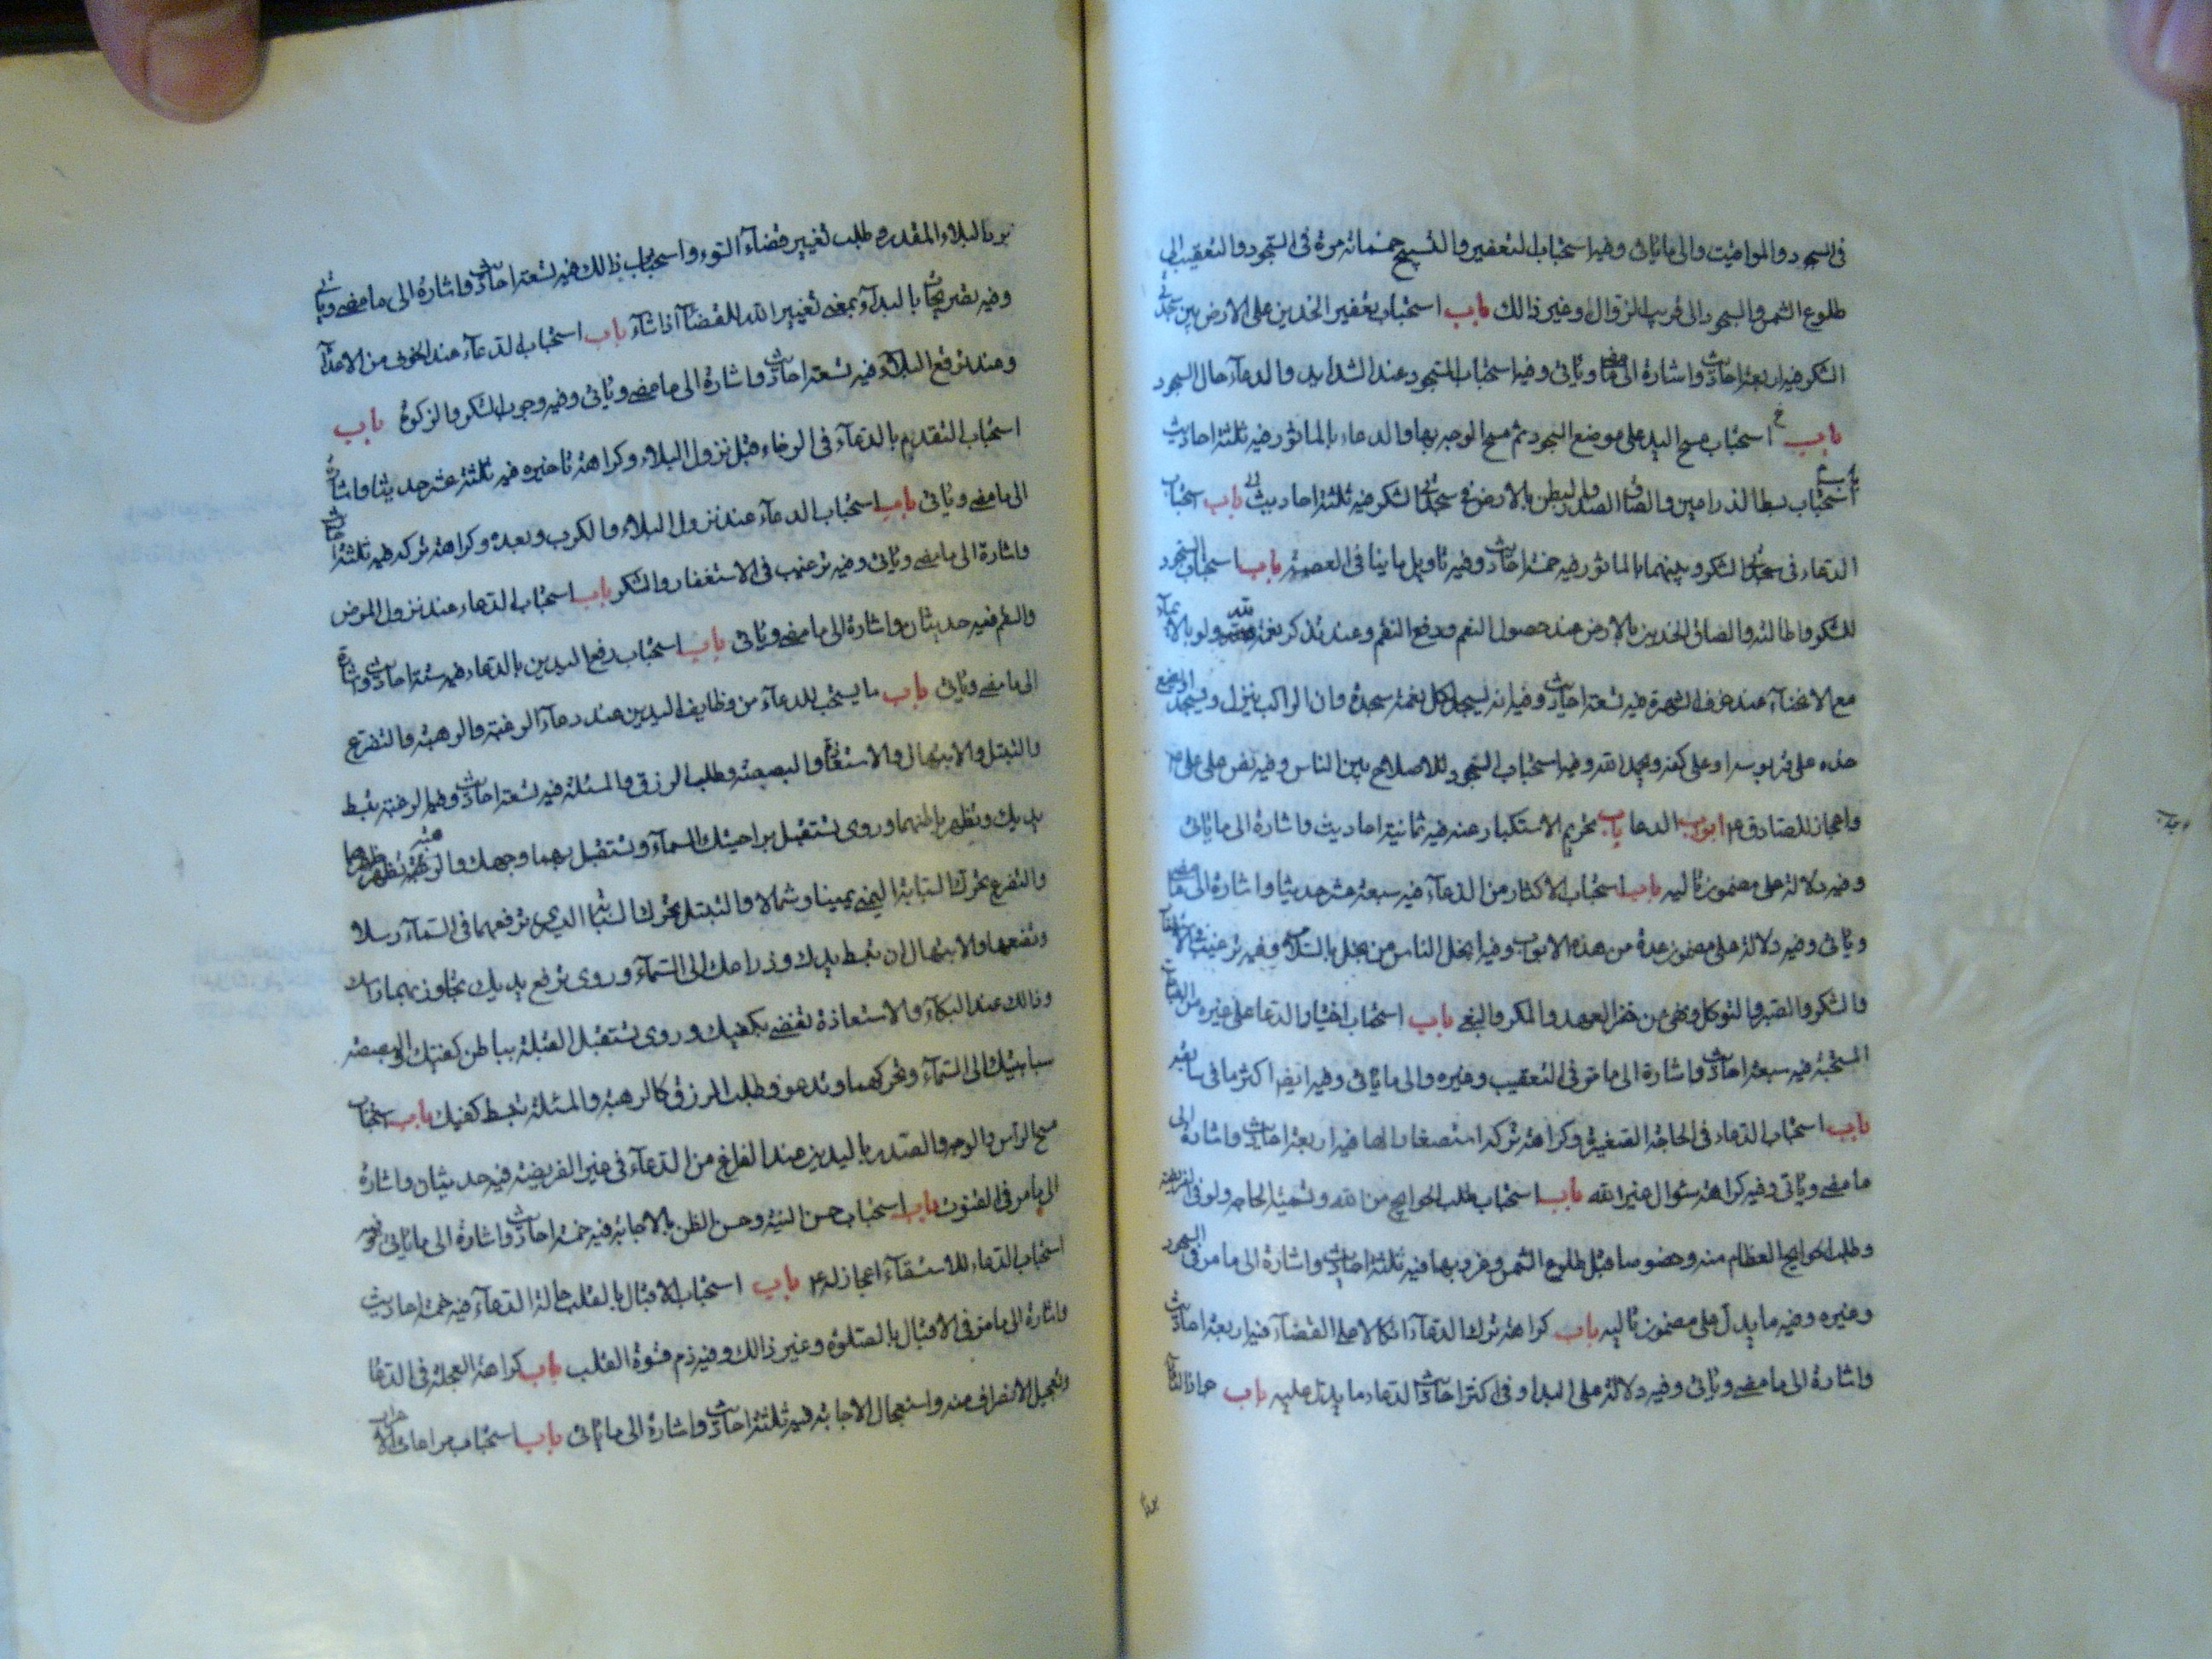 في السجود والمواقيت والى ما ياتى وفيه استحباب التعفير والتسبيح خمسمائة مرة في السجود والتعقيب الى
طلوع الشمس والسجود الى قريب الزوال وغير ذالك باب استحباب تعفير الخدين على الارض بين سجدتى
الشكر فيه اربعة احاديث واشارة الى ما مضى وياتى وفيه استحباب السجود عند الشدايد والدعآء حال السجود
باب استحباب مسح اليد على موضع السجود ثم مسح الوجه بها والدعاء بالماثور فيه ثلثة احاديث
باب استحباب بسط الذراعين والصاق الصدر والبطن بالارض في سجدتى الشكر فيه ثلثة احاديث باب استحباب
الدعاء في سجدتى الشكر وبينهما بالماثور فيه خمسة احاديث وفيه تاويل ما ينافى العصمة باب استحباب السجود
للشكر واطالته والصاق الخدين بالارض عند حصول النعم ودفع النقم وعند تذكر نعمة الله ولو بالايمآء
مع الانحنآء عند خوف الشهرة فيه تسعة احاديث وفيه انه يسجد لكل نعمة سجدة وان الراكب ينزل ويسجد او يضع
خده على قربوسه او على كفه ويحمد الله وفيه استحباب السجود للاصلاح بين الناس وفيه نص على على ع
واعجاز للصادق ع ابواب الدعا باب تحريم الاستكبار عنه فيه ثمانية احاديث واشارة الى ما ياتى
وفيه دلالة على مضمون تاليه باب استحباب الاكثار من الدعآء فيه سبعة عشر حديثا واشارة الى ما مضى
وياتى وفيه دلالة على مضمون عدة من هذه الابواب وفيه ابخل الناس من بخل بالسلام وفيه ترغيب في الاستغفار
والشكر والصبر والتوكل ونهى عن خفر العهد والمكر والبغى باب استحباب اختيار الدعا على غيره من العبادات
المستحبة فيه سبعة احاديث واشارة الى ما مر في التعقيب وغيره والى ما ياتى وفيه ايضا اكثر ما في سابقه
باب استحباب الدعاء في الحاجة الصغيرة وكراهة تركه استصغارا لها فيه اربعة احاديث واشارة الى
ما مضى وياتى وفيه كراهة سؤال غير الله باب استحباب طلب الحوايج من الله وتسمية الحاجة ولو في الفريضة
وطلب الحوايج العظام منه وخصوصا قبل طلوع الشمس وغروبها فيه ثلثة احاديث واشارة الى ما مر في السجود
وغيره وفيه ما يدل على مضمون تاليه باب كراهة ترك الدعآء اتكالا على القضآء فيه اربعة احاديث
واشارة الى ما مضى وياتى وفيه دلالة على البدا وفى اكثر احاديث الدعاء ما يدل عليه باب جواز الدعآء
برد البلاء المقدر وطلب تغيير قضاء السوء واستحباب ذالك فيه تسعة احاديث واشارة الى ما مضى وياتى
وفيه تصريحات بالبدآء بمعنى تغيير الله للقضآء اذا شآء باب استحباب الدعآء عند الخوف من الاعدآء
وعند توقع البلاء وفيه تسعة احاديث واشارة الى ما مضى وياتى وفيه وجوب الشكر والزكوة باب
استحباب التقدم بالدعآء في الرخاء قبل نزول البلاء وكراهة تاخيره فيه ثلثة عشر حديثا واشارة
الى ما مضى وياتى باب استحباب الدعآء عند نزول البلاء والكرب وبعده وكراهة تركه فيه ثلثة احاديث
واشارة الى ما مضى وياتى وفيه ترغيب في الاستغفار والشكر باب استحباب الدعاء عند نزول المرض
والسقم فيه حديثان واشارة الى ما مضى وياتى باب استحباب رفع اليدين بالدعاء فيه ستة احاديث واشارة
الى ما مضى وياتى باب ما يستحب للدعآء من وظايف اليدين عند دعآء الرغبة والرهبة والتضرع
والتبتل والابتهال والاستعاذة والبصبصة وطلب الرزق والمسئلة فيه تسعة احاديث وفيها الرغبة تبسط
يديك وتظهر باطنهما وروى تستقبل براحتيك السمآء وتستقبل بهما وجهك والرهبة تظهر ظهرهما
والتضرع تحرك السبابة اليمنى يمينا وشمالا والتبتل تحرك السبابة اليسرى ترفعهما في السمآء رسلا
وتضعها والابتهال ان تبسط يديك وذراعيك الى السمآء وروى ترفع يديك تجاوز بهما راسك
وذالك عند البكآء والاستعاذة تفضى بكفيك وروى تستقبل القبلة بباطن كفيك والبصبصة
سبابتيك الى السمآء وتحركهما وتدعو وطلب الرزق كالرهبة والمسئلة تبسط كفيك باب استحباب
مسح الراس والوجه والصدر باليدين عند الفراغ من الدعآء في غير الفريضة فيه حديثان واشارة
الى ما مر في القنوت باب استحباب حسن النية وحسن الظن بالاجابة فيه خمسة احاديث واشارة الى ما ياتى وفيه
استحباب الدعاء للاستسقآء اعجاز له ع باب استحباب الاقبال بالقلب حالة الدعآء فيه خمسة احاديث
واشارة الى ما مر في الاقبال بالصلوة وغير ذالك وفيه ذم قسوة القلب باب كراهة العجلة في الدعآء
وتعجيل الانصراف منه واستعجال الاجابة فيه ثلثة احاديث واشارة الى ما ياتى باب استحباب مراعات